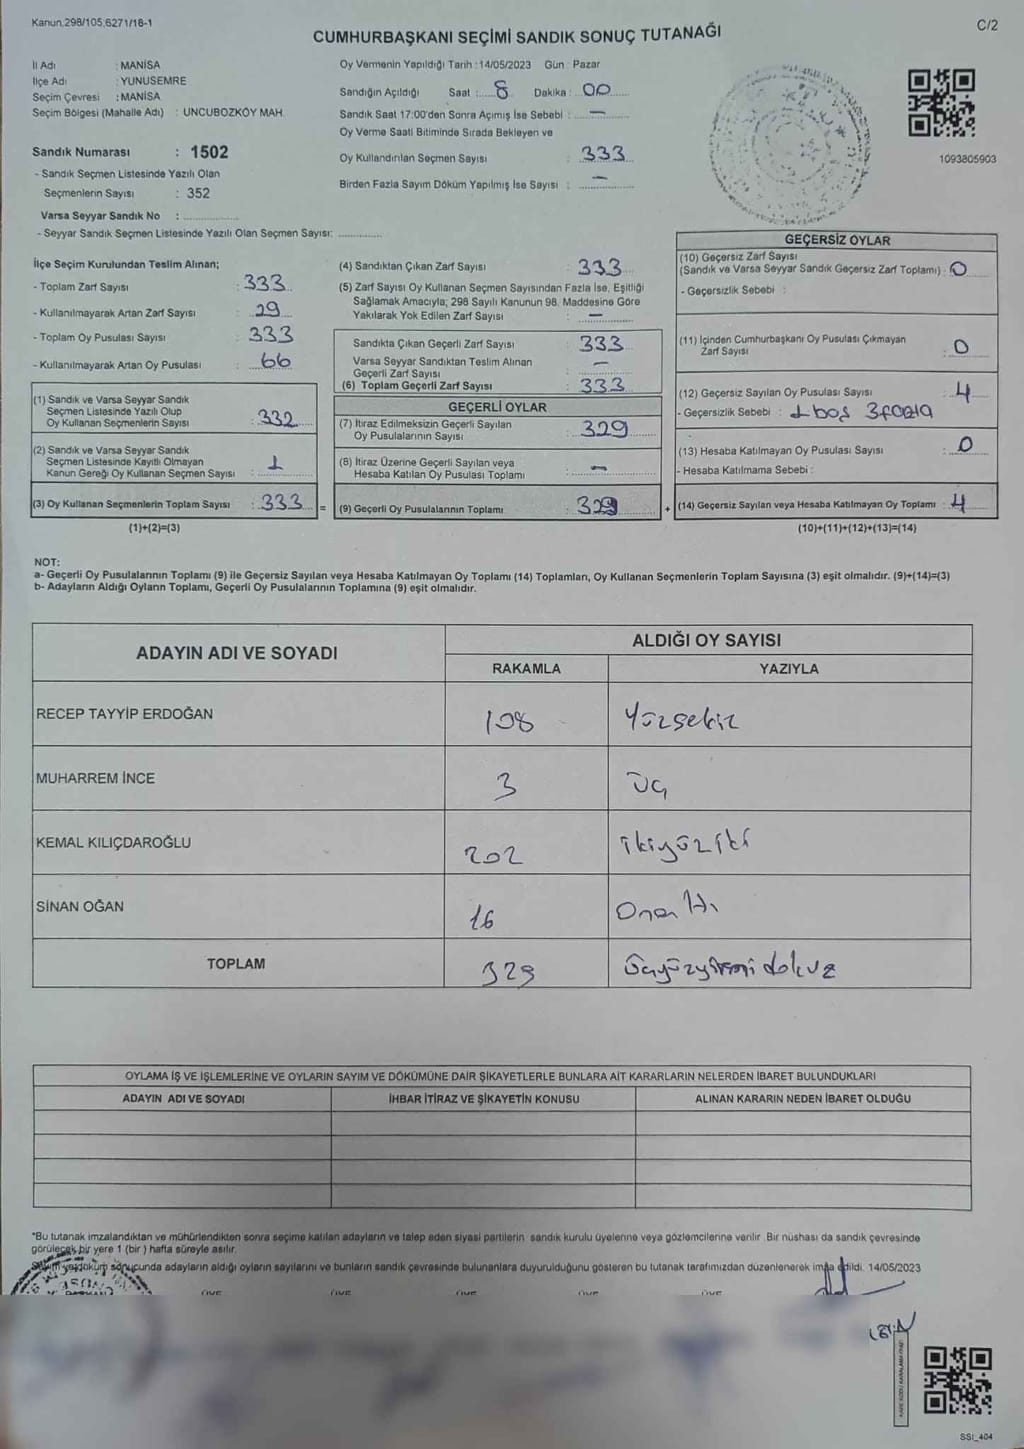 Kanun.298/105,6271/18-1
C/2
CUMHURBAŞKANI SEÇİMİ SANDIK SONUÇ TUTANAĞI
İl Adı : MANİSA
İlçe Adı : YUNUSEMRE
Seçim Çevresi : MANİSA
Seçim Bölgesi (Mahalle Adı) : UNCUBOZKÖY MAH.
Sandık Numarası : 1502
- Sandık Seçmen Listesinde Yazılı Olan
Seçmenlerin Sayısı : 352
Varsa Seyyar Sandık No : ..............
- Seyyar Sandık Seçmen Listesinde Yazılı Olan Seçmen Sayısı: ............
Oy Vermenin Yapıldığı Tarih : 14/05/2023 Gün : Pazar
Sandığın Açıldığı Saat : 8 Dakika : 00
Sandık Saat 17:00'den Sonra Açımış İse Sebebi : —
Oy Verme Saati Bitiminde Sırada Bekleyen ve
Oy Kullandırılan Seçmen Sayısı : 333
Birden Fazla Sayım Döküm Yapılmış İse Sayısı : —
1093805903
İlçe Seçim Kurulundan Teslim Alınan;
- Toplam Zarf Sayısı : 333
- Kullanılmayarak Artan Zarf Sayısı : 29
- Toplam Oy Pusulası Sayısı : 333
- Kullanılmayarak Artan Oy Pusulası : 66
(1) Sandık ve Varsa Seyyar Sandık
Seçmen Listesinde Yazılı Olup
Oy Kullanan Seçmenlerin Sayısı : 332
(2) Sandık ve Varsa Seyyar Sandık
Seçmen Listesinde Kayıtlı Olmayan
Kanun Gereği Oy Kullanan Seçmen Sayısı : 1
(3) Oy Kullanan Seçmenlerin Toplam Sayısı : 333 =
(1)+(2)=(3)
(4) Sandıktan Çıkan Zarf Sayısı : 333
(5) Zarf Sayısı Oy Kullanan Seçmen Sayısından Fazla İse, Eşitliği
Sağlamak Amacıyla; 298 Sayılı Kanunun 98. Maddesine Göre
Yakılarak Yok Edilen Zarf Sayısı : —
Sandıkta Çıkan Geçerli Zarf Sayısı : 333
Varsa Seyyar Sandıktan Teslim Alınan
Geçerli Zarf Sayısı : —
(6) Toplam Geçerli Zarf Sayısı : 333
GEÇERLİ OYLAR
(7) İtiraz Edilmeksizin Geçerli Sayılan
Oy Pusulalarının Sayısı : 329
(8) İtiraz Üzerine Geçerli Sayılan veya
Hesaba Katılan Oy Pusulası Toplamı : —
(9) Geçerli Oy Pusulalarının Toplamı : 329 +
GEÇERSİZ OYLAR
(10) Geçersiz Zarf Sayısı
(Sandık ve Varsa Seyyar Sandık Geçersiz Zarf Toplamı) : 0
- Geçersizlik Sebebi :
(11) İçinden Cumhurbaşkanı Oy Pusulası Çıkmayan
Zarf Sayısı : 0
(12) Geçersiz Sayılan Oy Pusulası Sayısı : 4
- Geçersizlik Sebebi : 1 boş 3 fazla
(13) Hesaba Katılmayan Oy Pusulası Sayısı : 0
- Hesaba Katılmama Sebebi :
(14) Geçersiz Sayılan veya Hesaba Katılmayan Oy Toplamı : 4
(10)+(11)+(12)+(13)=(14)
NOT:
a- Geçerli Oy Pusulalarının Toplamı (9) ile Geçersiz Sayılan veya Hesaba Katılmayan Oy Toplamı (14) Toplamları, Oy Kullanan Seçmenlerin Toplam Sayısına (3) eşit olmalıdır. (9)+(14)=(3)
b- Adayların Aldığı Oyların Toplamı, Geçerli Oy Pusulalarının Toplamına (9) eşit olmalıdır.
ADAYIN ADI VE SOYADI
ALDIĞI OY SAYISI
RAKAMLA YAZIYLA
RECEP TAYYİP ERDOĞAN 108 Yüzsekiz
MUHARREM İNCE 3 Üç
KEMAL KILIÇDAROĞLU 202 ikiyüziki
SİNAN OĞAN 16 Onaltı
TOPLAM 329 Üçyüzyirmi dokuz
OYLAMA İŞ VE İŞLEMLERİNE VE OYLARIN SAYIM VE DÖKÜMÜNE DAİR ŞİKAYETLERLE BUNLARA AİT KARARLARIN NELERDEN İBARET BULUNDUKLARI
ADAYIN ADI VE SOYADI İHBAR İTİRAZ VE ŞİKAYETİN KONUSU ALINAN KARARIN NEDEN İBARET OLDUĞU
*Bu tutanak imzalandıktan ve mühürlendikten sonra seçime katılan adayların ve talep eden siyasi partilerin sandık kurulu üyelerine veya gözlemcilerine verilir. Bir nüshası da sandık çevresinde
görülecek bir yere 1 (bir ) hafta süreyle asılır.
Sayım ve döküm sonucunda adayların aldığı oyların sayılarını ve bunların sandık çevresinde bulunanlara duyurulduğunu gösteren bu tutanak tarafımızdan düzenlenerek imza edildi. 14/05/2023
ÜYE ÜYE ÜYE ÜYE ÜYE
SSI_404